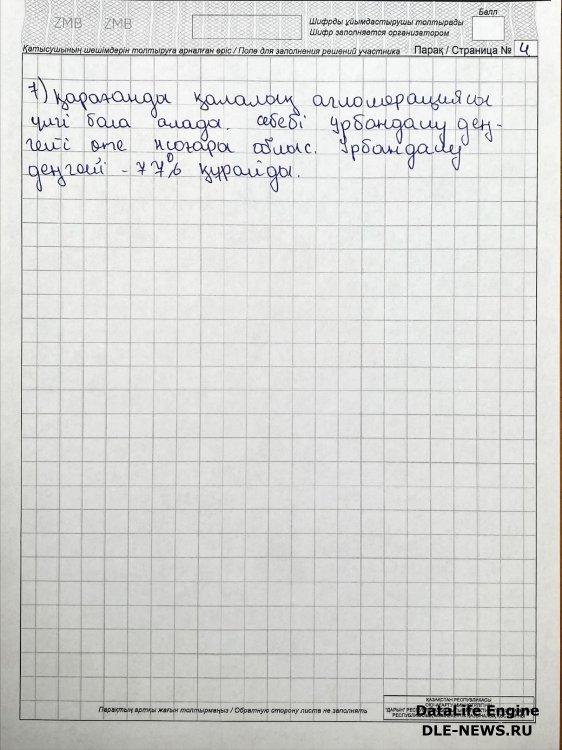 ZMB ZMB
Балл
Шифрды ұйымдастырушы толтырады
Шифр заполняется организатором
Қатысушының шешімдерін толтыруға арналған өріс / Поле для заполнения решений участника Парақ / Страница № 4
7) Қарағанды қалалық агломорациясы
үлгі бола алады. себебі Урбандалу дең-
гейі өте жоғары облыс. Урбандалу
деңгейі - 77% құрайды.
Парақтың артқы жағын толтырмаңыз / Обратную сторону листа не заполнять
ҚАЗАҚСТАН РЕСПУБЛИКАСЫ
DataLife Engine
DLE-NEWS.RU